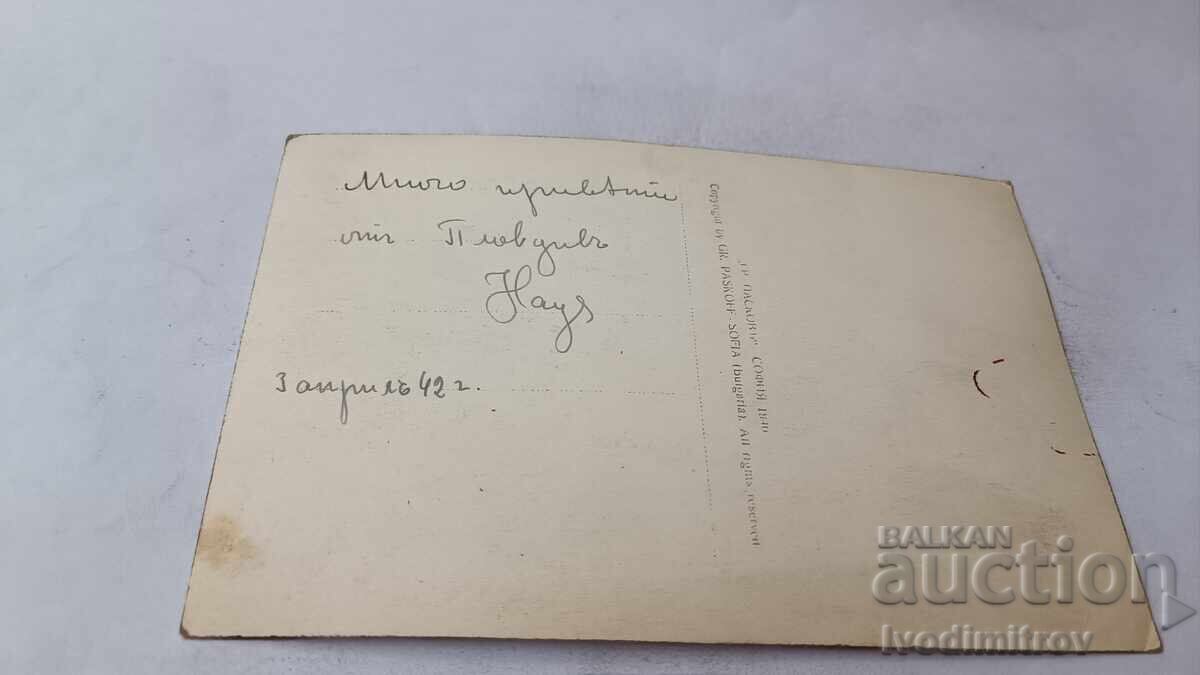 Много привѣти
отъ Пловдивъ
3 априлъ 42 г.
„ГР. ПАСКОВЪ" СОФИЯ 1940
Copyright by GR. PASKOFF - SOFIA (Bulgaria). All rights reserved
BALKAN
auction
Ivodimitrov